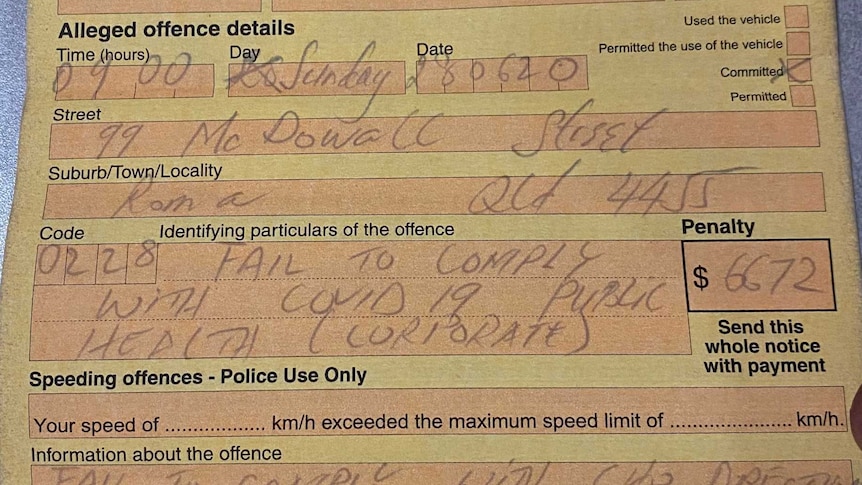 Used the vehicle
Alleged offence details
Permitted the use of the vehicle
Time (hours) Day Date
0900 Sunday 280620
Committed X
Permitted
Street
99 McDowall Street
Suburb/Town/Locality
Roma Qld 4455
Code Identifying particulars of the offence Penalty
0228 FAIL TO COMPLY
$ 6672
WITH COVID 19 PUBLIC
HEALTH (CORPORATE)
Send this
whole notice
with payment
Speeding offences - Police Use Only
Your speed of .................. km/h exceeded the maximum speed limit of ....................... km/h.
Information about the offence
FAIL TO COMPLY WITH CHO